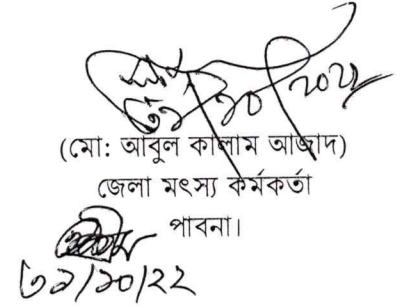 (মো: আবুল কালাম আজাদ)
জেলা মৎস্য কর্মকর্তা
পাবনা।
৩১/১০/২২